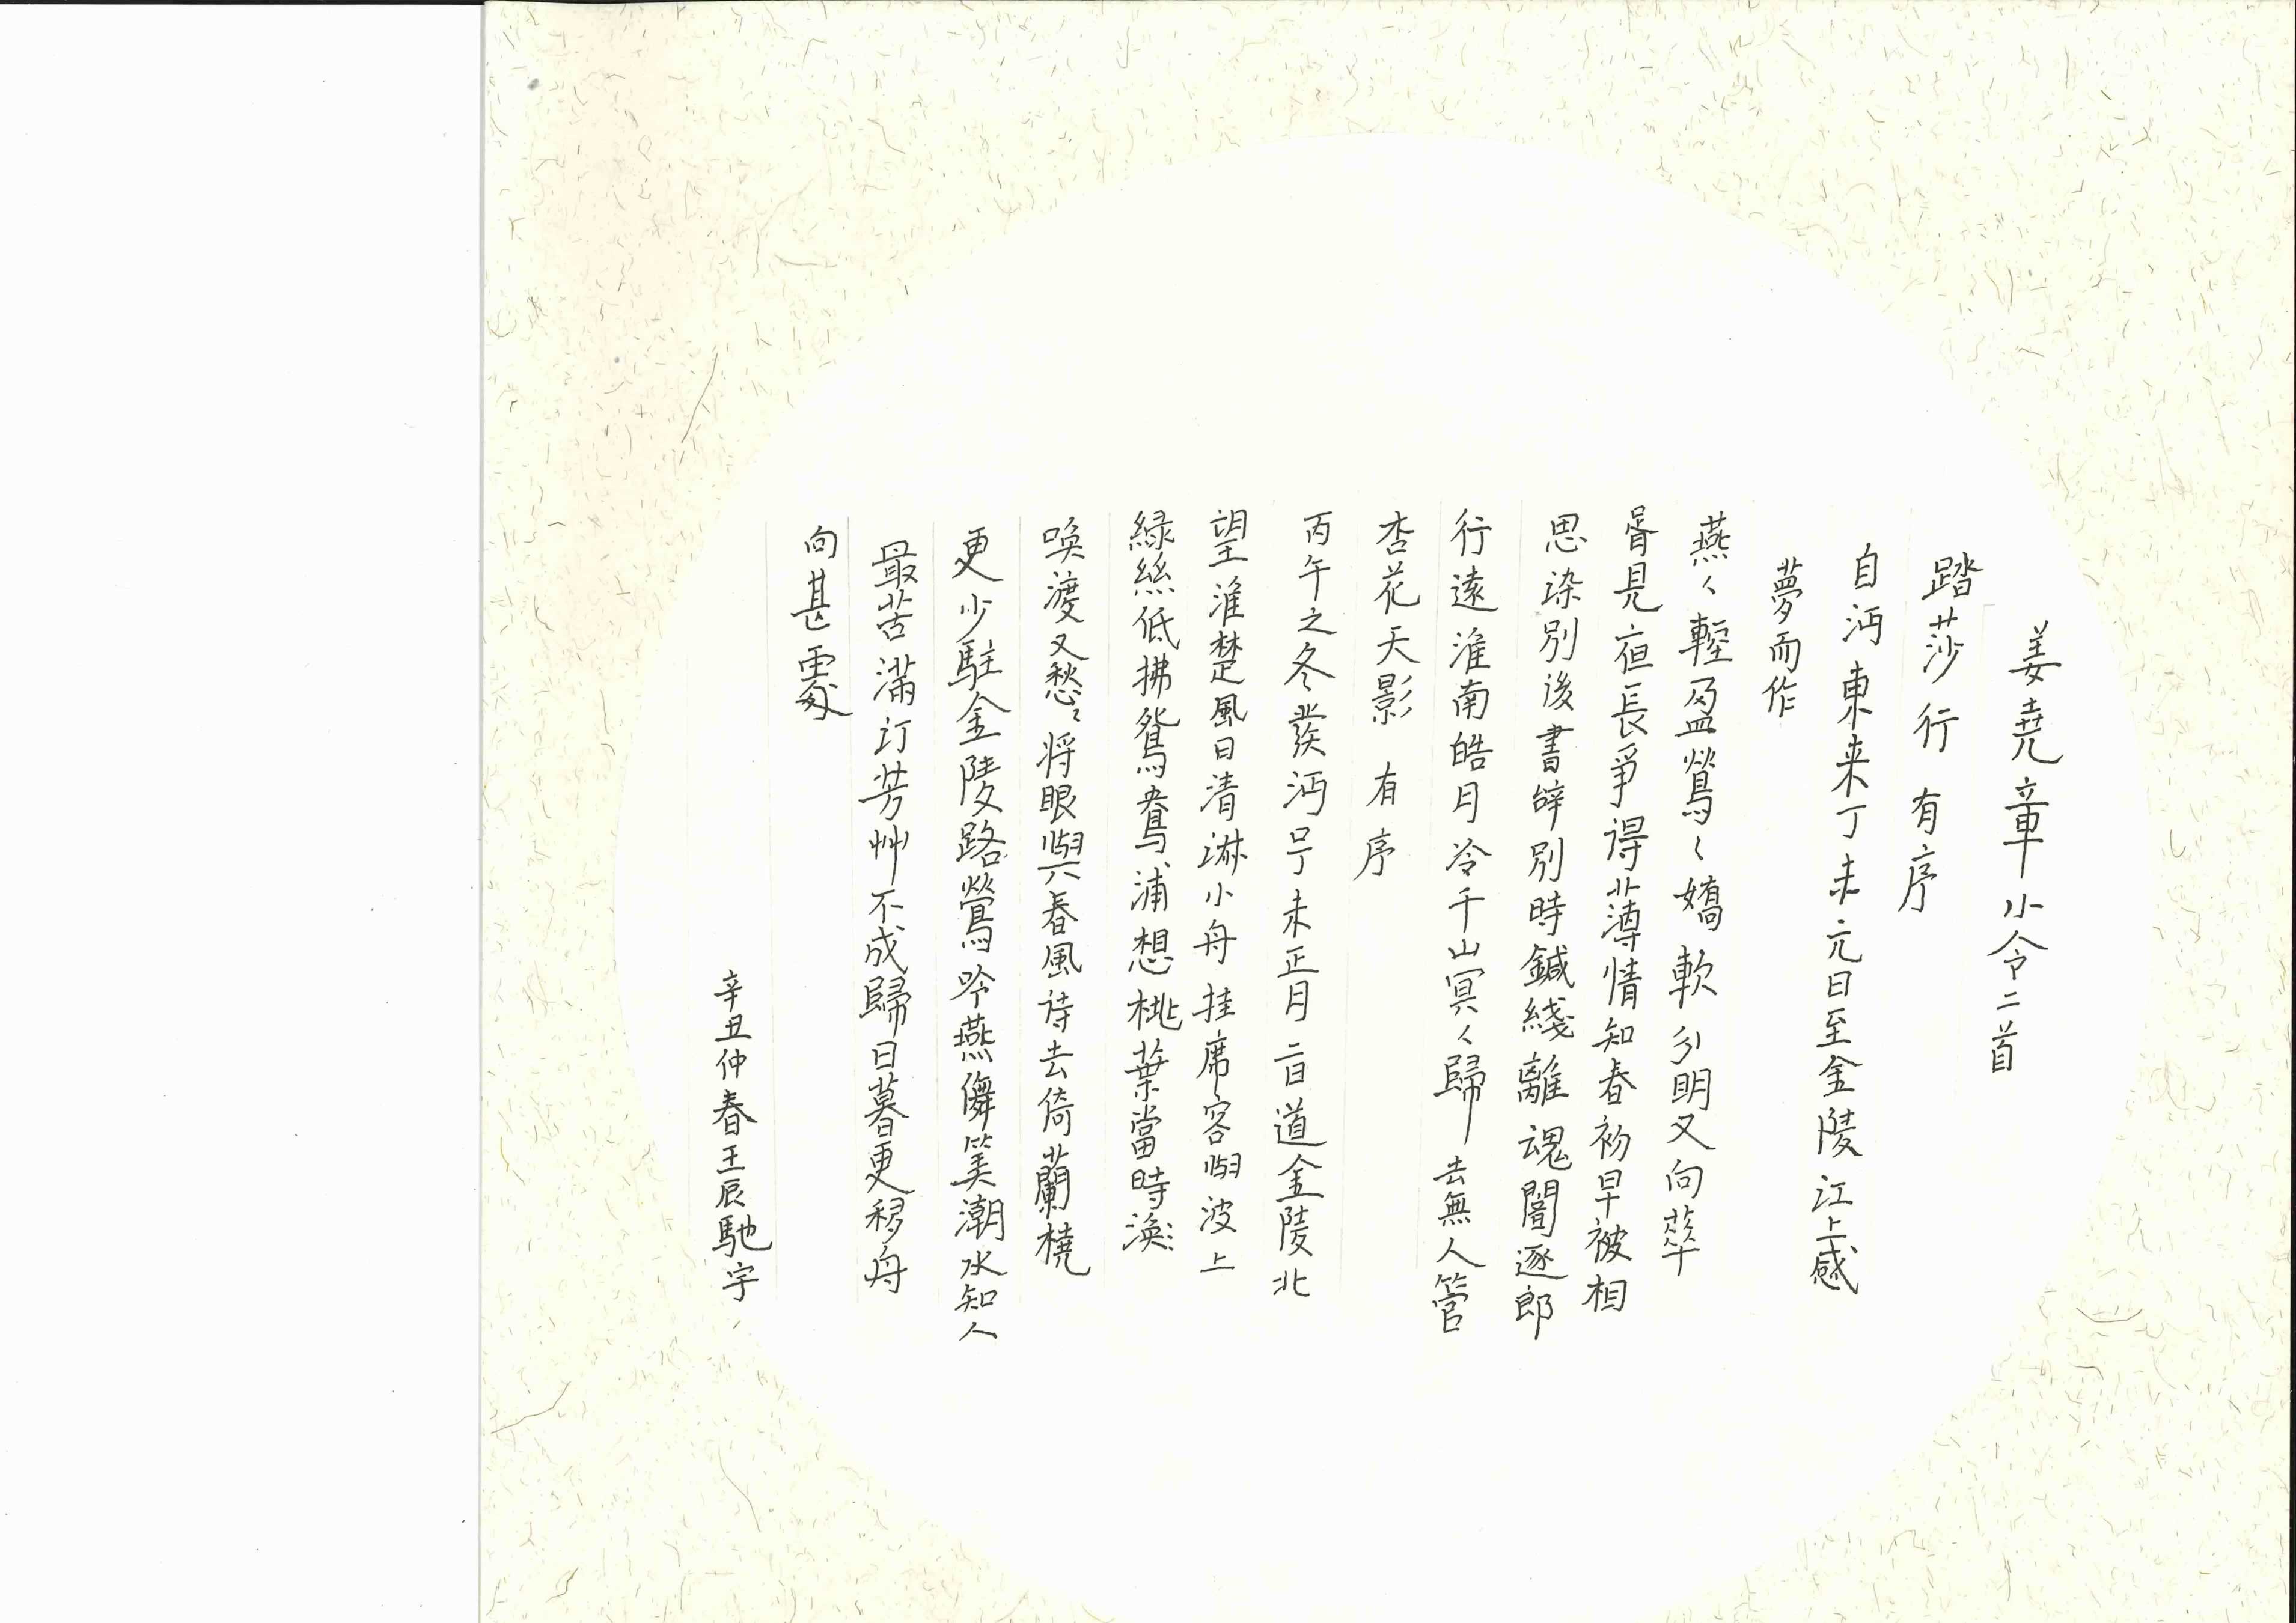 姜堯章小令二首
踏莎行 有序
自沔東来丁未元日至金陵江上感
夢而作
燕〻輕盈鶯〻嬌軟分明又向華
胥見夜長爭得薄情知春初早被相
思染別後書辭別時鍼綫離魂闇逐郎
行遠淮南皓月冷千山冥〻歸去無人管
杏花天影 有序
丙午之冬發沔口丁未正月二日道金陵北
望淮楚風日清淋小舟挂席容與波上
綠絲低拂鴛鴦浦想桃葉當時渙
喚渡又愁〻將眼與春風待去倚蘭橈
更少駐金陵路鶯吟燕儛筭潮水知人
最苦滿汀芳艸不成歸日暮更移舟
向甚處
辛丑仲春王辰馳宇